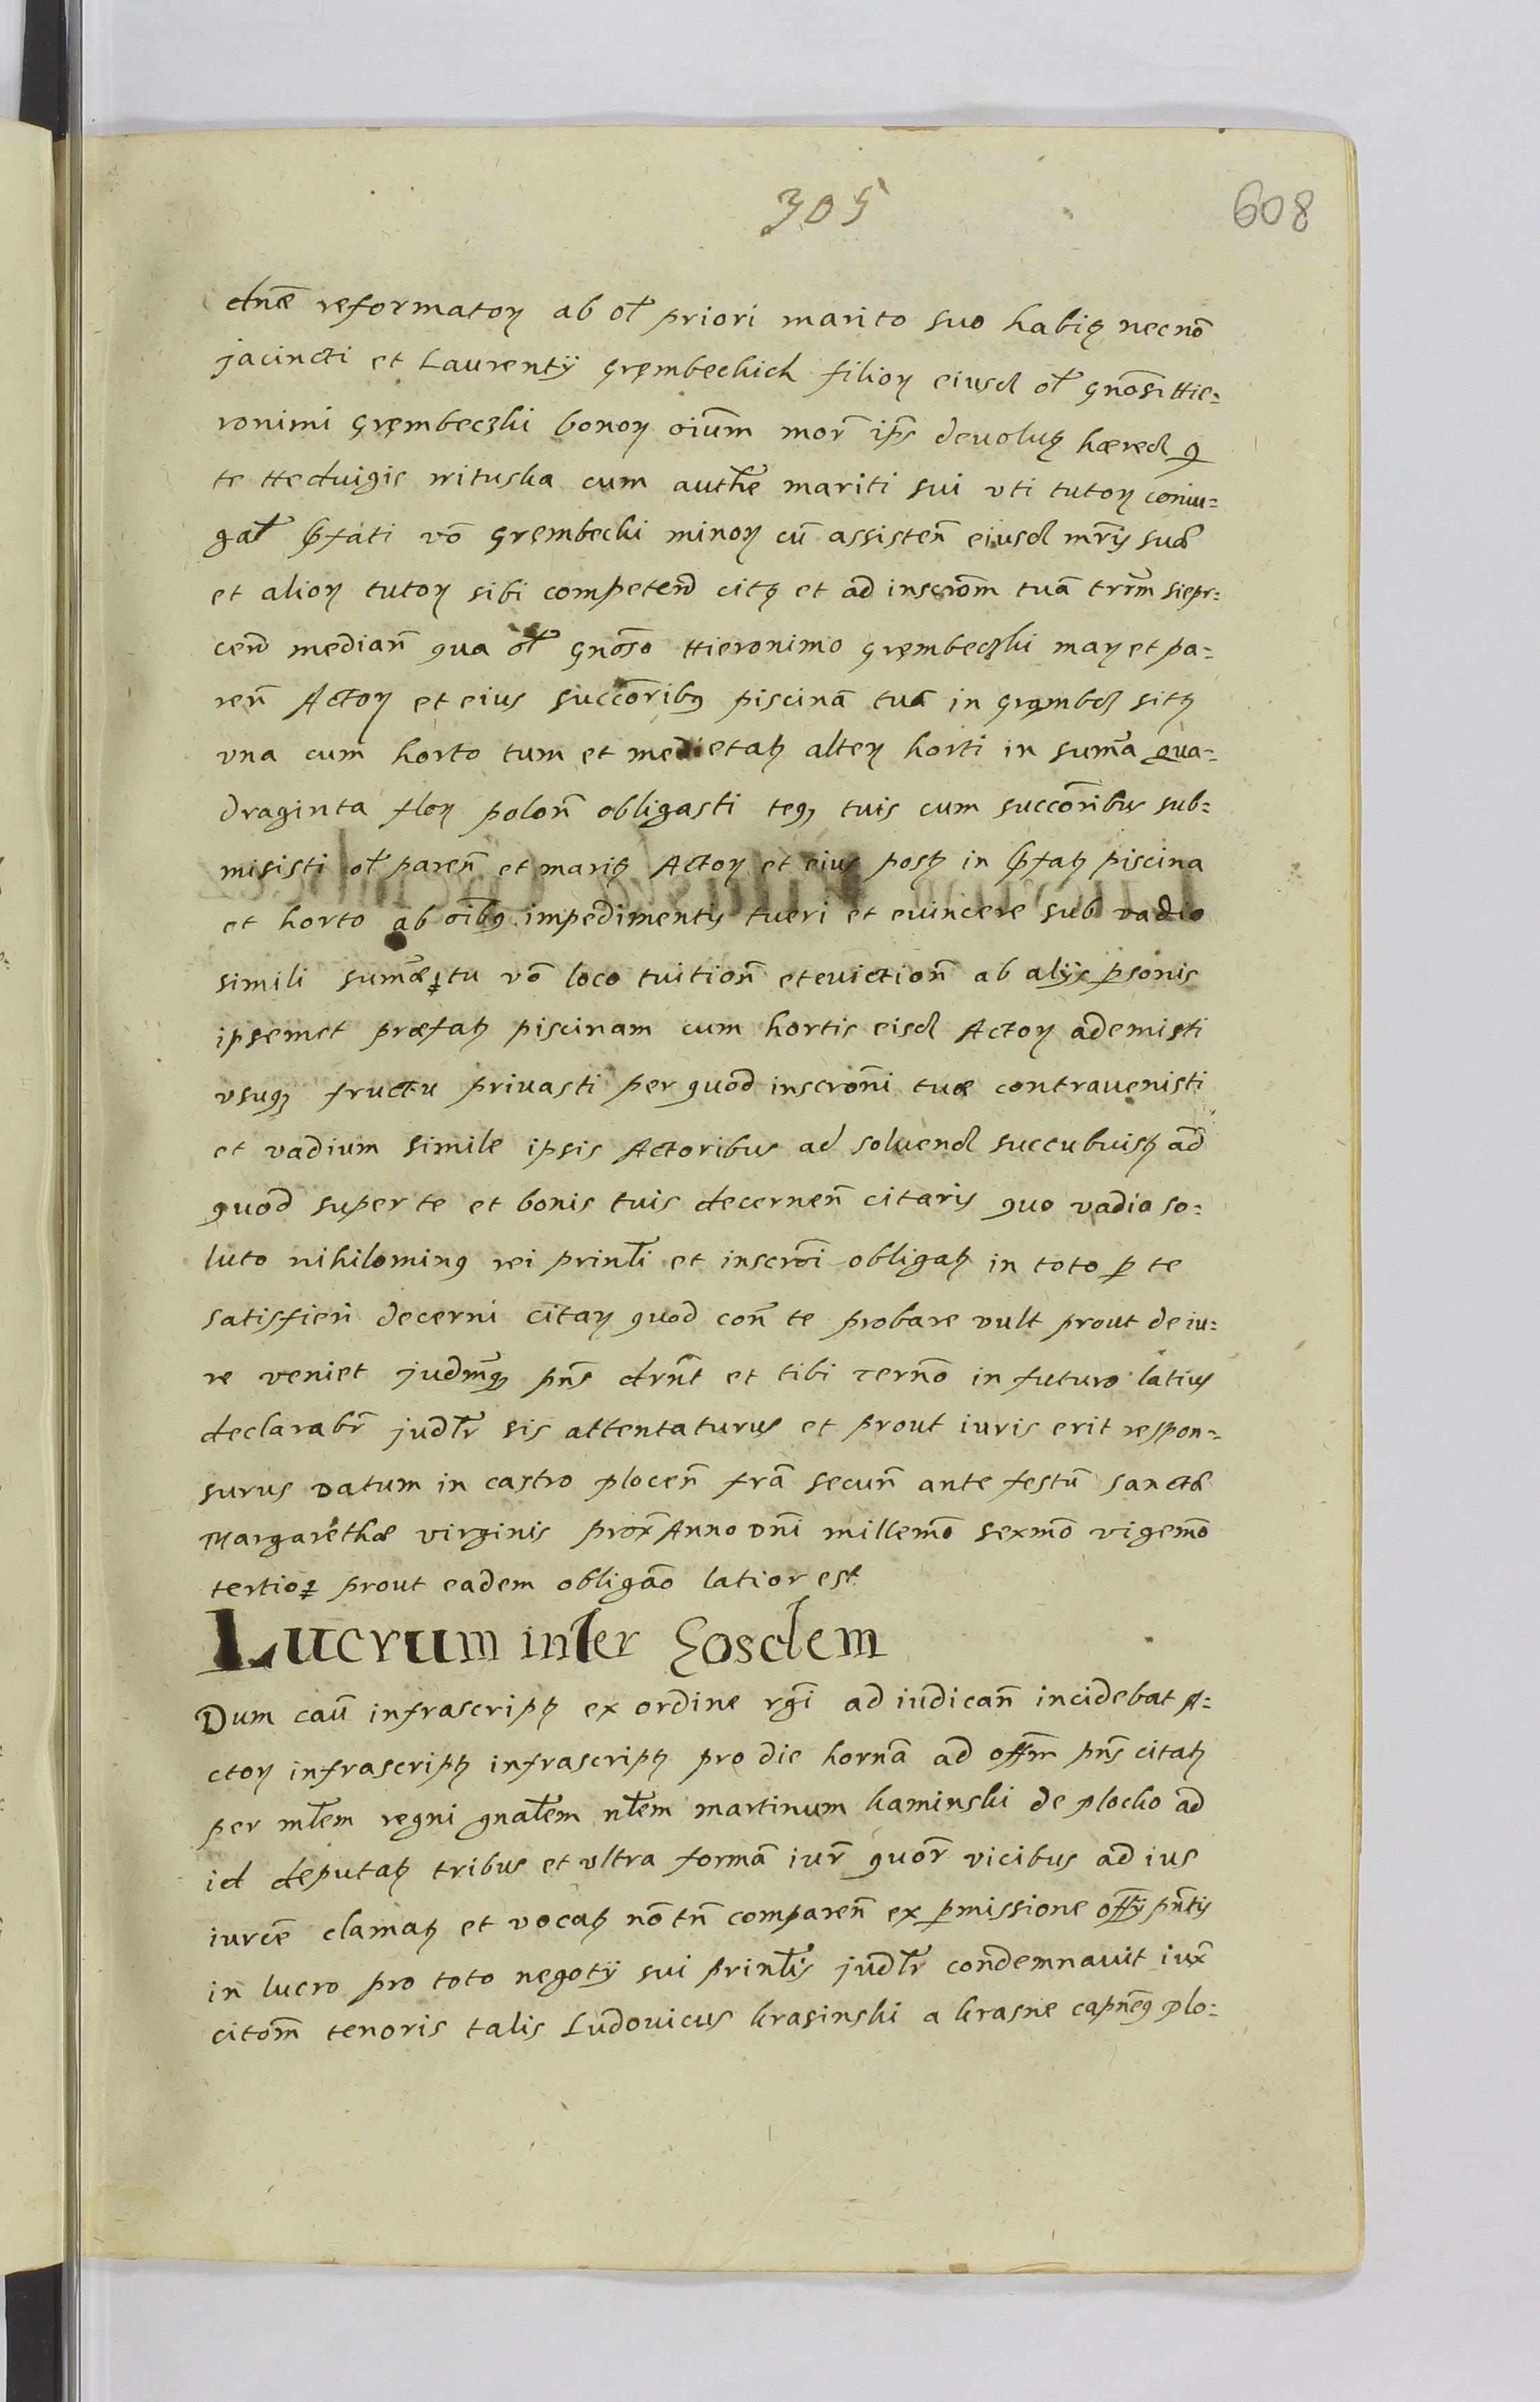 305
608
dnæ reformator ab ol priori marito suo habit necnō
jacincti et Laurentij Grębeckich filior eiusd ol Gnosi Hie-
ronimi Grębeczki bonor oium mor ips devolut hæred q
te Heduigis nituska cum authe mariti sui vti tutor coniu-
gal pfati vō Gręmbecki minor cū assisten eiusd mris suæ
et alior tutor sibi competen citt et ad inscrom tuā trrm siepr-
cen median qua ol Gnoso Hieronimo Gręmbeczki mar et pa-
ren Actor et eius succoribus piscinā tuā in Grąmbcz sitt
vna cum horto tum et medietat alter horti in sumā qua-
draginta flor polon obligasti teq tuis cum succoribus sub-
misisti ol paren et marit Actor et eius post in pfat piscina
et horto ab oibus impedimentis tueri et euincere sub vadio
simili sumæ tu vō loco tuition et euiction ab alijs psonis
ipsemet præfat piscinam cum hortis eisd Actor ademisti
vsuq fructu priuasti per quod inscroni tuæ contrauenisti
et vadium simile ipsis Actoribus ad soluend succubuist ad
quod super te et bonis tuis decernen citaris quo vadio so-
luto nihilominus rei prinli et inscroi obligat in toto p te
satisfieri decerni citar quod con te probare vult prout de iu-
re veniet judmq pns drnt et tibi Terno in futuro latius
declarabr judlr sis attentaturus et prout iuris erit respon-
surus Datum in castro plocen frā secun ante festū sanctæ
Margarethæ virginis prox Anno Dni millemo sexmo vigemo
tertio prout eadem obligāo latior est
Lucrum inter Eosdem
Dum cau infrascript ex ordine rgi ad iudican incidebat A-
ctor infrascript infrascript pro die hornā ad offm pns citat
per mlem regni gnalem nlem martinum kaminski de plocko ad
id deputat tribus et vltra formā iur quor vicibus ad ius
iurce clamat et vocat nō tn comparen ex pmissione offij pntis
in lucro pro toto negotij sui prinlis judlr condemnauit iux
citom tenoris talis Ludouicus krasinski a krasne capneus plo-